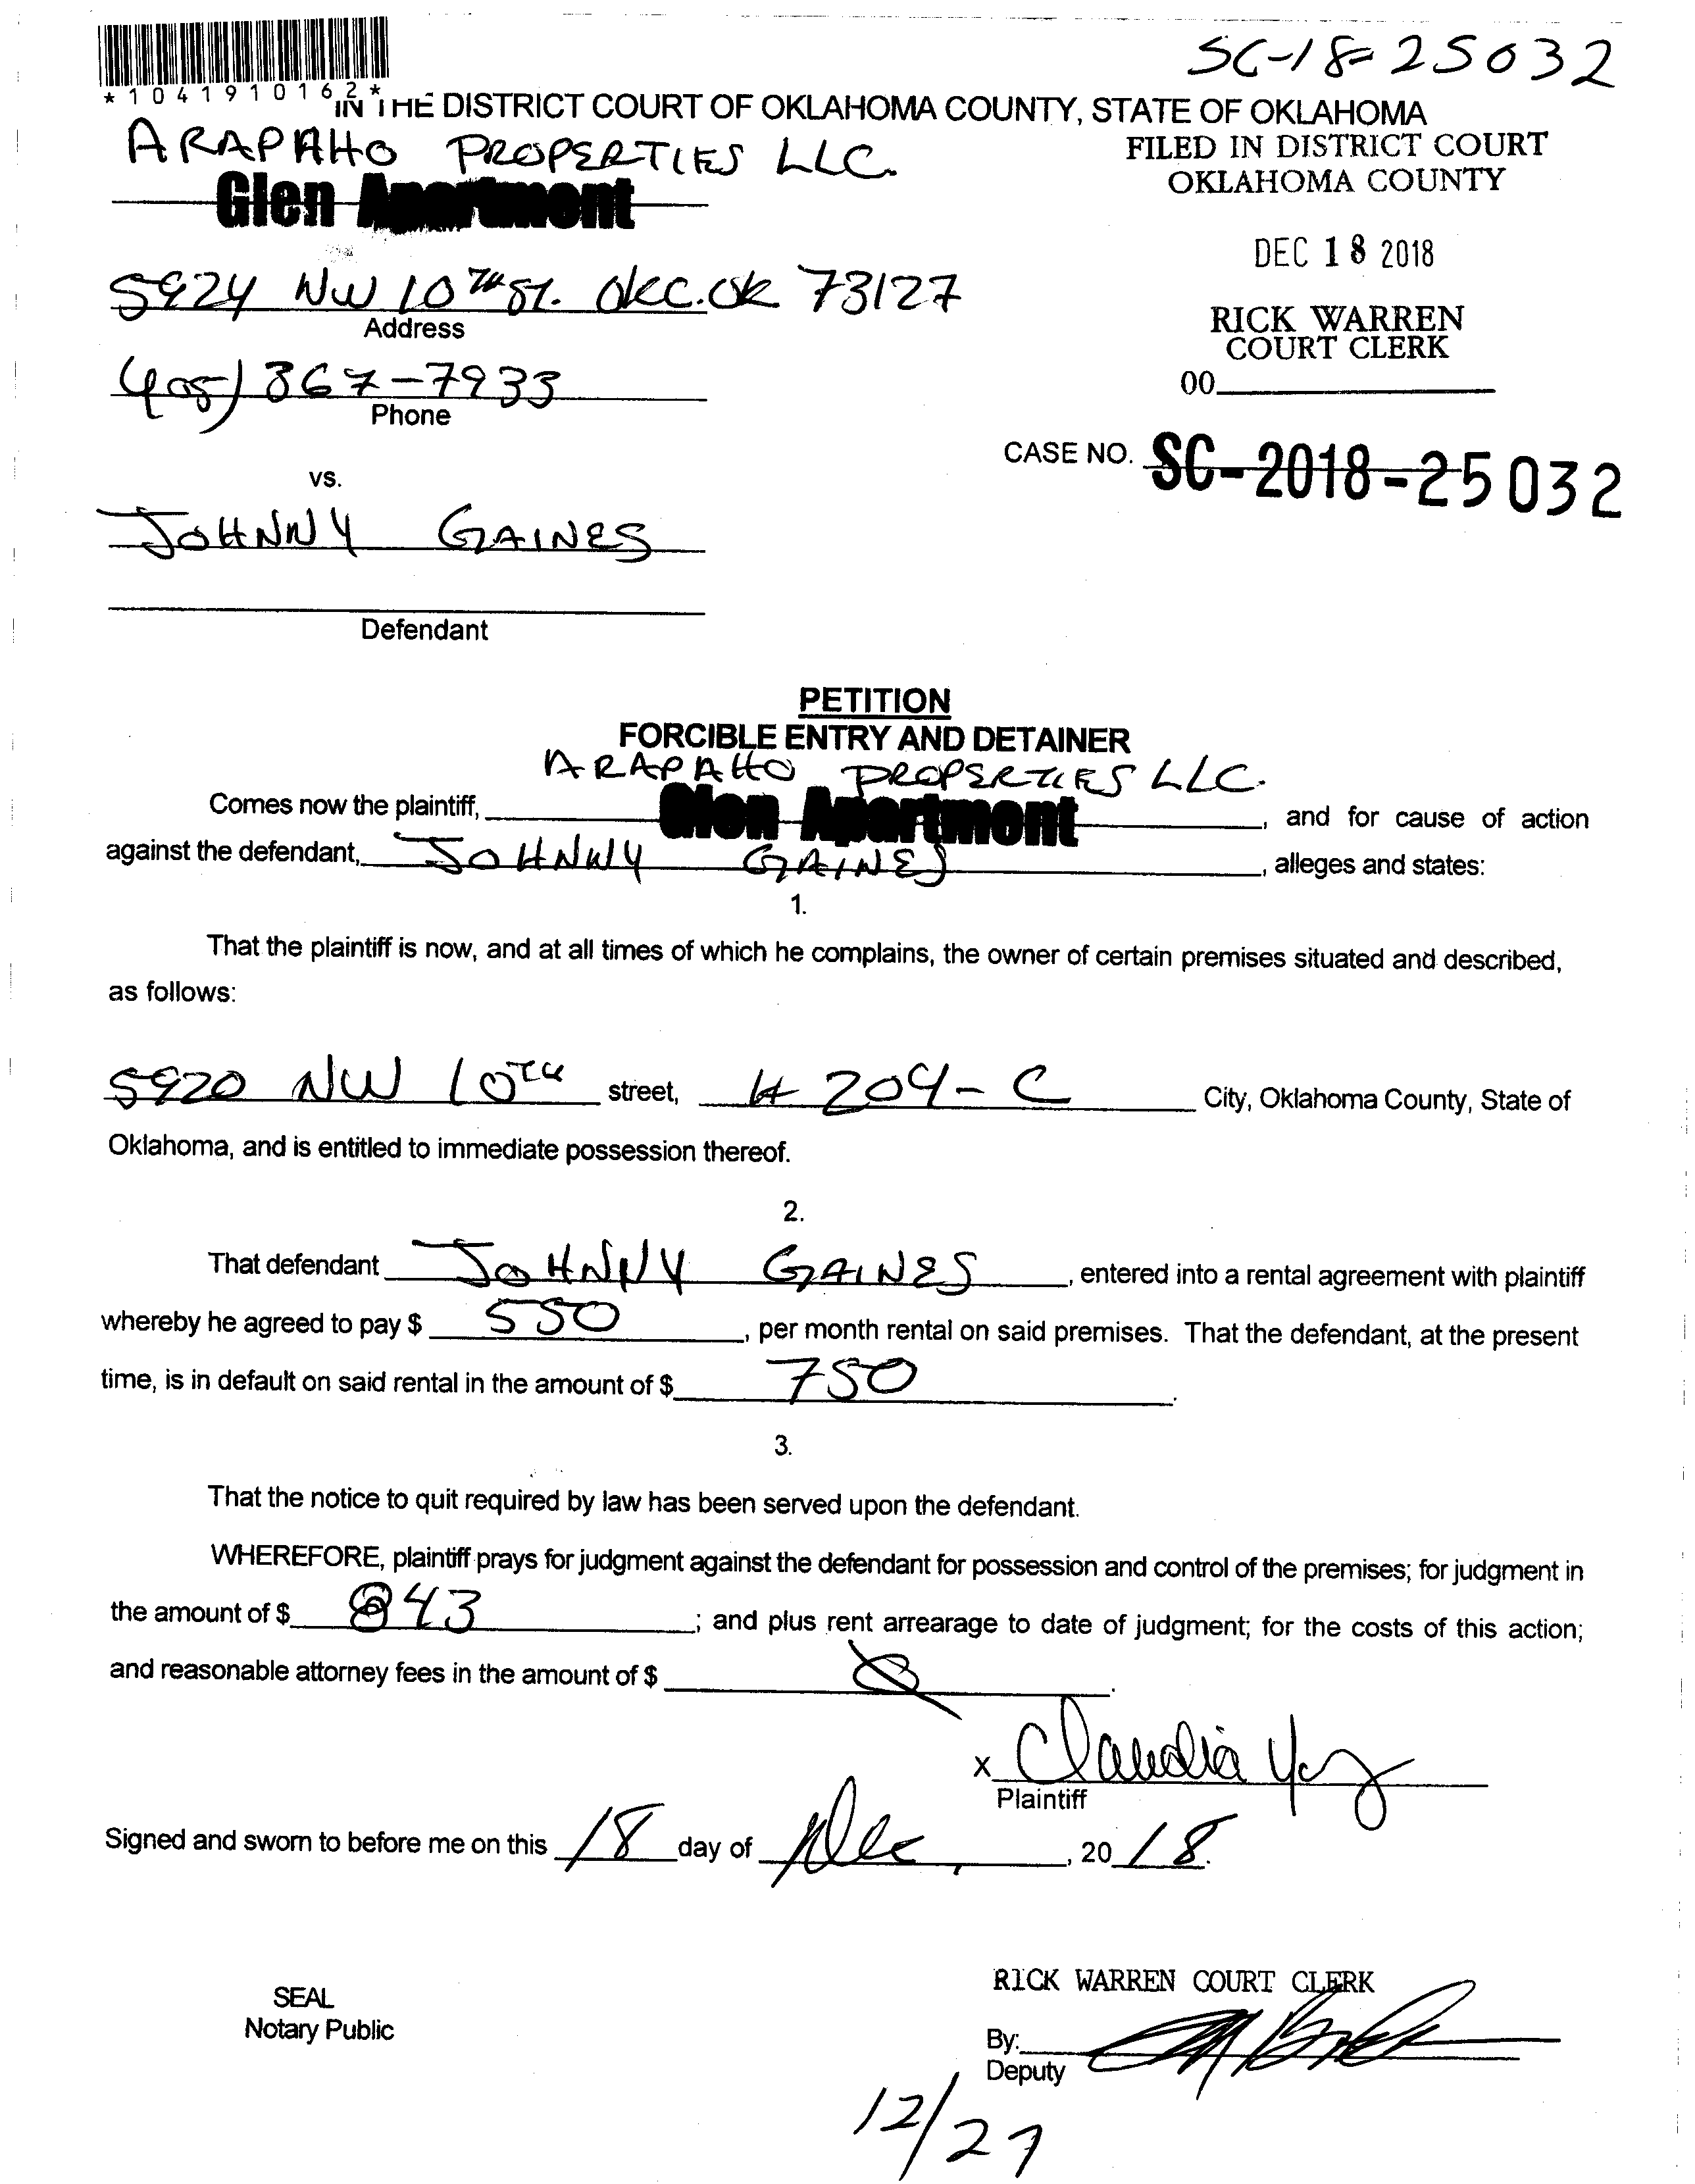 SC-18-25032
*1041910162*
IN THE DISTRICT COURT OF OKLAHOMA COUNTY, STATE OF OKLAHOMA
ARAPAHO PROPERTIES LLC.
Glen Apartment
FILED IN DISTRICT COURT
OKLAHOMA COUNTY
DEC 18 2018
5924 NW 10TH ST. OKC. OK 73127
Address
RICK WARREN
COURT CLERK
405) 367-7933
Phone
00
CASE NO. SC-2018-25032
VS.
JOHNNY GAINES
Defendant
PETITION
FORCIBLE ENTRY AND DETAINER
ARAPAHO PROPERTIES LLC.
Comes now the plaintiff, Glen Apartment, and for cause of action
against the defendant, JOHNNY GAINES, alleges and states:
1.
That the plaintiff is now, and at all times of which he complains, the owner of certain premises situated and described,
as follows:
5920 NW 10TH street, # 204-C City, Oklahoma County, State of
Oklahoma, and is entitled to immediate possession thereof.
2.
That defendant JOHNNY GAINES, entered into a rental agreement with plaintiff
whereby he agreed to pay $ 550, per month rental on said premises. That the defendant, at the present
time, is in default on said rental in the amount of $ 750.
3.
That the notice to quit required by law has been served upon the defendant.
WHEREFORE, plaintiff prays for judgment against the defendant for possession and control of the premises; for judgment in
the amount of $ 843; and plus rent arrearage to date of judgment; for the costs of this action;
and reasonable attorney fees in the amount of $ 0.
X Claudia
Plaintiff
Signed and sworn to before me on this 18 day of Dec, 2018.
RICK WARREN COURT CLERK
SEAL
Notary Public
By:
Deputy
12/27